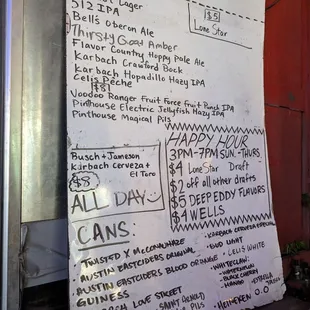 Lager
512 IPA
Bell's Oberon Ale
Thirsty Goat Amber
Flavor Country Hoppy Pale Ale
Karbach Crawford Bock
Karbach Hopadillo Hazy IPA
Celis Peche
$8
Voodoo Ranger Fruit Force Fruit Punch IPA
Pinthouse Electric Jellyfish Hazy IPA
Pinthouse Magical Pils
$5
Lone Star
Busch + Jameson
Karbach Cerveza +
El Toro
$8
ALL DAY
HAPPY HOUR
3PM-7PM SUN.-THURS.
$4 Lone Star Draft
$2 off all other drafts
$5 DEEP EDDY FLAVORS
$4 WELLS
CANS:
TWISTED X McCONAUHAZE
AUSTIN EASTCIDERS ORIGINAL
AUSTIN EASTCIDERS BLOOD ORANGE
GUINESS
LOVE STREET
SAINT ARNOLD
PILS
KARBACH CERVEZA ESPECIAL
BUD LIGHT
CELIS WHITE
WHITECLAW:
WATERMELON
BLACK CHERRY
MANGO
HEINEKEN 0.0